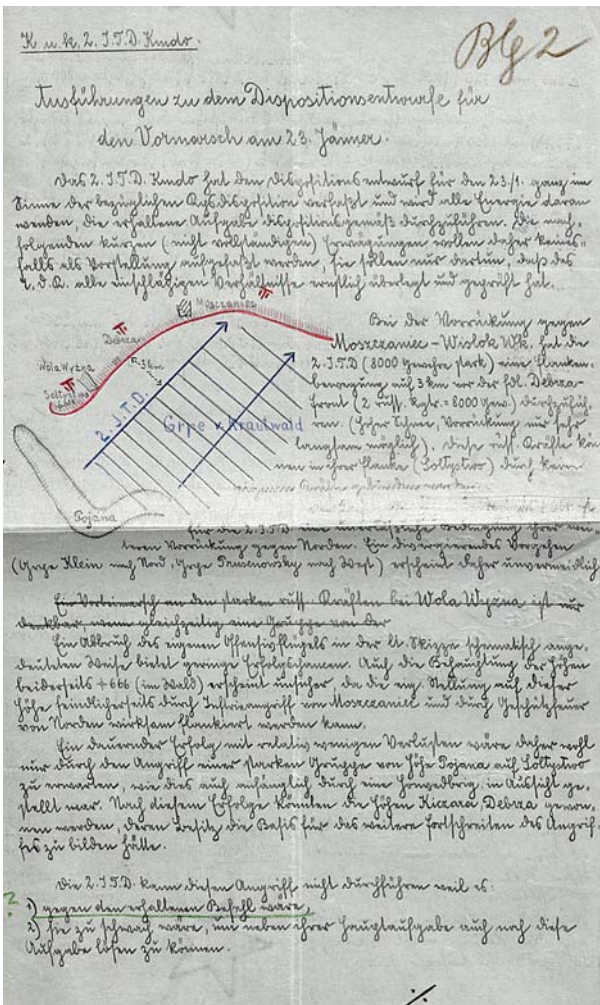 K. u. k. 2. I.T.D. Kmdo.
Blg 2
Ausführungen zu dem Dispositionsentwurfe für
den Vormarsch am 23. Jänner.
Das 2. I.T.D. Kmdo hat den Dispositionsentwurf für den 23./1. ganz im
Sinne der bezüglichen Kpsdisposition verfaßt und wird alle Energie daran
wenden, die erhaltene Aufgabe dispositionsgemäß durchzuführen. Die nach-
folgenden kurzen (nicht vollständigen) Erwägungen wollen daher keines-
falls als Vorstellung aufgefaßt werden, sie sollen nur dartun, daß das
alle einschlägigen Verhältnisse ernstlich überlegt und geprüft hat.
Moszczaniec
Debrza
Wola Wyzna
3 km
Soltystwo
2. I.T.D.
Grpe v. Krautwald
Pojana
Bei der Vorrückung gegen
Moszczaniec - Wislok Wk. hat die
2. I.T.D (8000 Gewehre stark) eine Flanken-
bewegung auf 3 km vor der fdl. Debrza-
front (2 russ. Rgtr. = 8000 Gew.) durchzufüh-
ren. (Hoher Schnee, Vorrückung nur sehr
langsam möglich), diese russ. Kräfte kön-
nen in ihrer Flanke (Soltystwo) durch
für die 2. I.T.D. eine unerläßliche Bedingung ihrer wei-
teren Vorrückung gegen Norden. Ein divergierendes Vorgehen
(Grpe Klein nach Nord, Grpe nach West) erscheint daher unvermeidlich
Ein Vorbeimarsch an den starken russ. Kräften bei Wola Wyzna ist nur
denkbar, wenn gleichzeitig eine Gruppe von der
Ein Abbruch des eigenen Offensivflügels in der lt. Skizze schematisch ange-
deuteten Weise bietet geringe Erfolgschancen. Auch die Behauptung der Höhen
beiderseits +666 (im Wald) erscheint unsicher, da die eig. Stellung auf dieser
Höhe feindlicherseits durch Infrieangriff von Moszczaniec und durch Geschützfeuer
von Norden wirksam flankiert werden kann.
Ein dauernder Erfolg mit relativ wenigen Verlusten wäre daher wohl
nur durch den Angriff einer starken Gruppe von Höhe Pojana auf Soltystwo
zu erwarten, wie dies auch anfänglich durch eine Honvedbrig. in Aussicht ge-
stellt war. Nach diesem Erfolge könnten die Höhen Kiczara Debrza gewon-
nen werden, deren Besitz die Basis für das weitere Fortschreiten des Angrif-
fes zu bilden hätte.
Die 2. I.T.D. kann diesen Angriff nicht durchführen weil es:
? 1) gegen den erhaltenen Befehl wäre,
2) sie zu schwach wäre, um neben ihrer Hauptaufgabe auch noch diese
Aufgabe lösen zu können.
./.